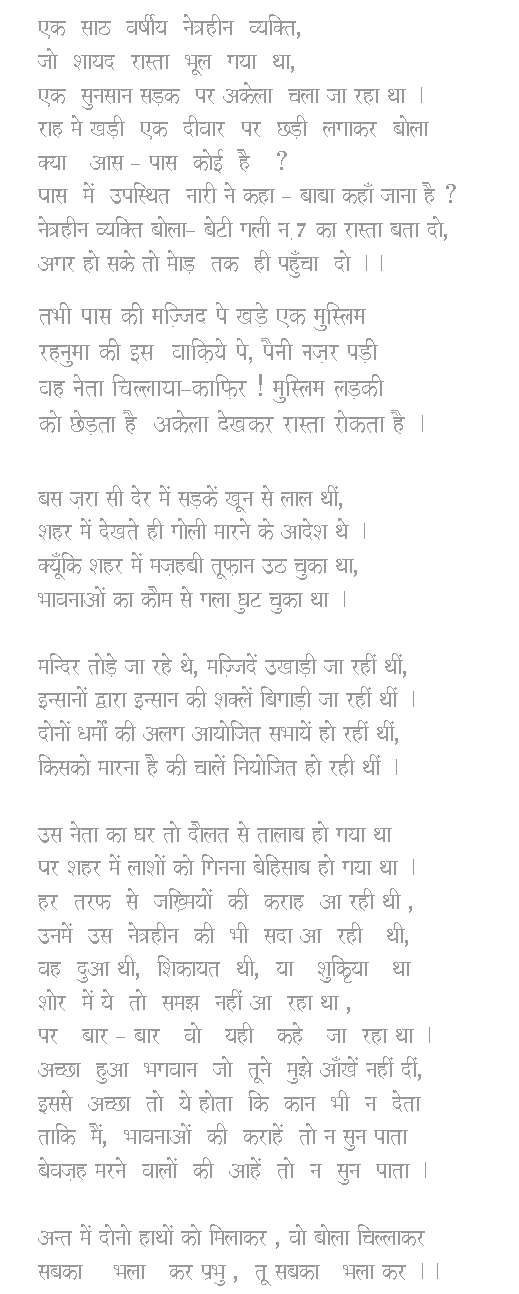 एक साठ वर्षीय नेत्रहीन व्यक्ति,
जो शायद रास्ता भूल गया था,
एक सुनसान सड़क पर अकेला चला जा रहा था |
राह मे खड़ी एक दीवार पर छड़ी लगाकर बोला
क्या आस - पास कोई है ?
पास में उपस्थित नारी ने कहा - बाबा कहाँ जाना है ?
नेत्रहीन व्यक्ति बोला- बेटी गली न.7 का रास्ता बता दो,
अगर हो सके तो मोड़ तक ही पहुँचा दो ||
तभी पास की मज्जिद पे खड़े एक मुस्लिम
रहनुमा की इस वाकि़ये पे, पैनी नज़र पड़ी
वह नेता चिल्लाया-काफि़र ! मुस्लिम लड़की
को छेड़ता है अकेला देखकर रास्ता रोकता है |
बस ज़रा सी देर में सड़कें खून से लाल थीं,
शहर में देखते ही गोली मारने के आदेश थे |
क्यूँकि शहर में मज़हबी तूफ़ान उठ चुका था,
भावनाओं का कौम से गला घुट चुका था |
मन्दिर तोड़े जा रहे थे, मज्जिदें उखाड़ी जा रहीं थीं,
इन्सानों द्वारा इन्सान की शक्लें बिगाड़ी जा रहीं थीं |
दोनों धर्मों की अलग आयोजित सभायें हो रहीं थीं,
किसको मारना है की चालें नियोजित हो रही थीं |
उस नेता का घर तो दौलत से तालाब हो गया था
पर शहर में लाशों को गिनना बेहिसाब हो गया था |
हर तरफ से जख़्मियों की कराह आ रही थी ,
उनमें उस नेत्रहीन की भी सदा आ रही थी,
वह दुआ थी, शिकायत थी, या शुक्रिया था
शोर में ये तो समझ नहीं आ रहा था ,
पर बार - बार वो यही कहे जा रहा था |
अच्छा हुआ भगवान जो तूने मुझे आँखें नहीं दीं,
इससे अच्छा तो ये होता कि कान भी न देता
ताकि मैं, भावनाओं की कराहें तो न सुन पाता
बेवज़ह मरने वालों की आहें तो न सुन पाता |
अन्त में दोनो हाथों को मिलाकर , वो बोला चिल्लाकर
सबका भला कर प्रभु , तू सबका भला कर ||